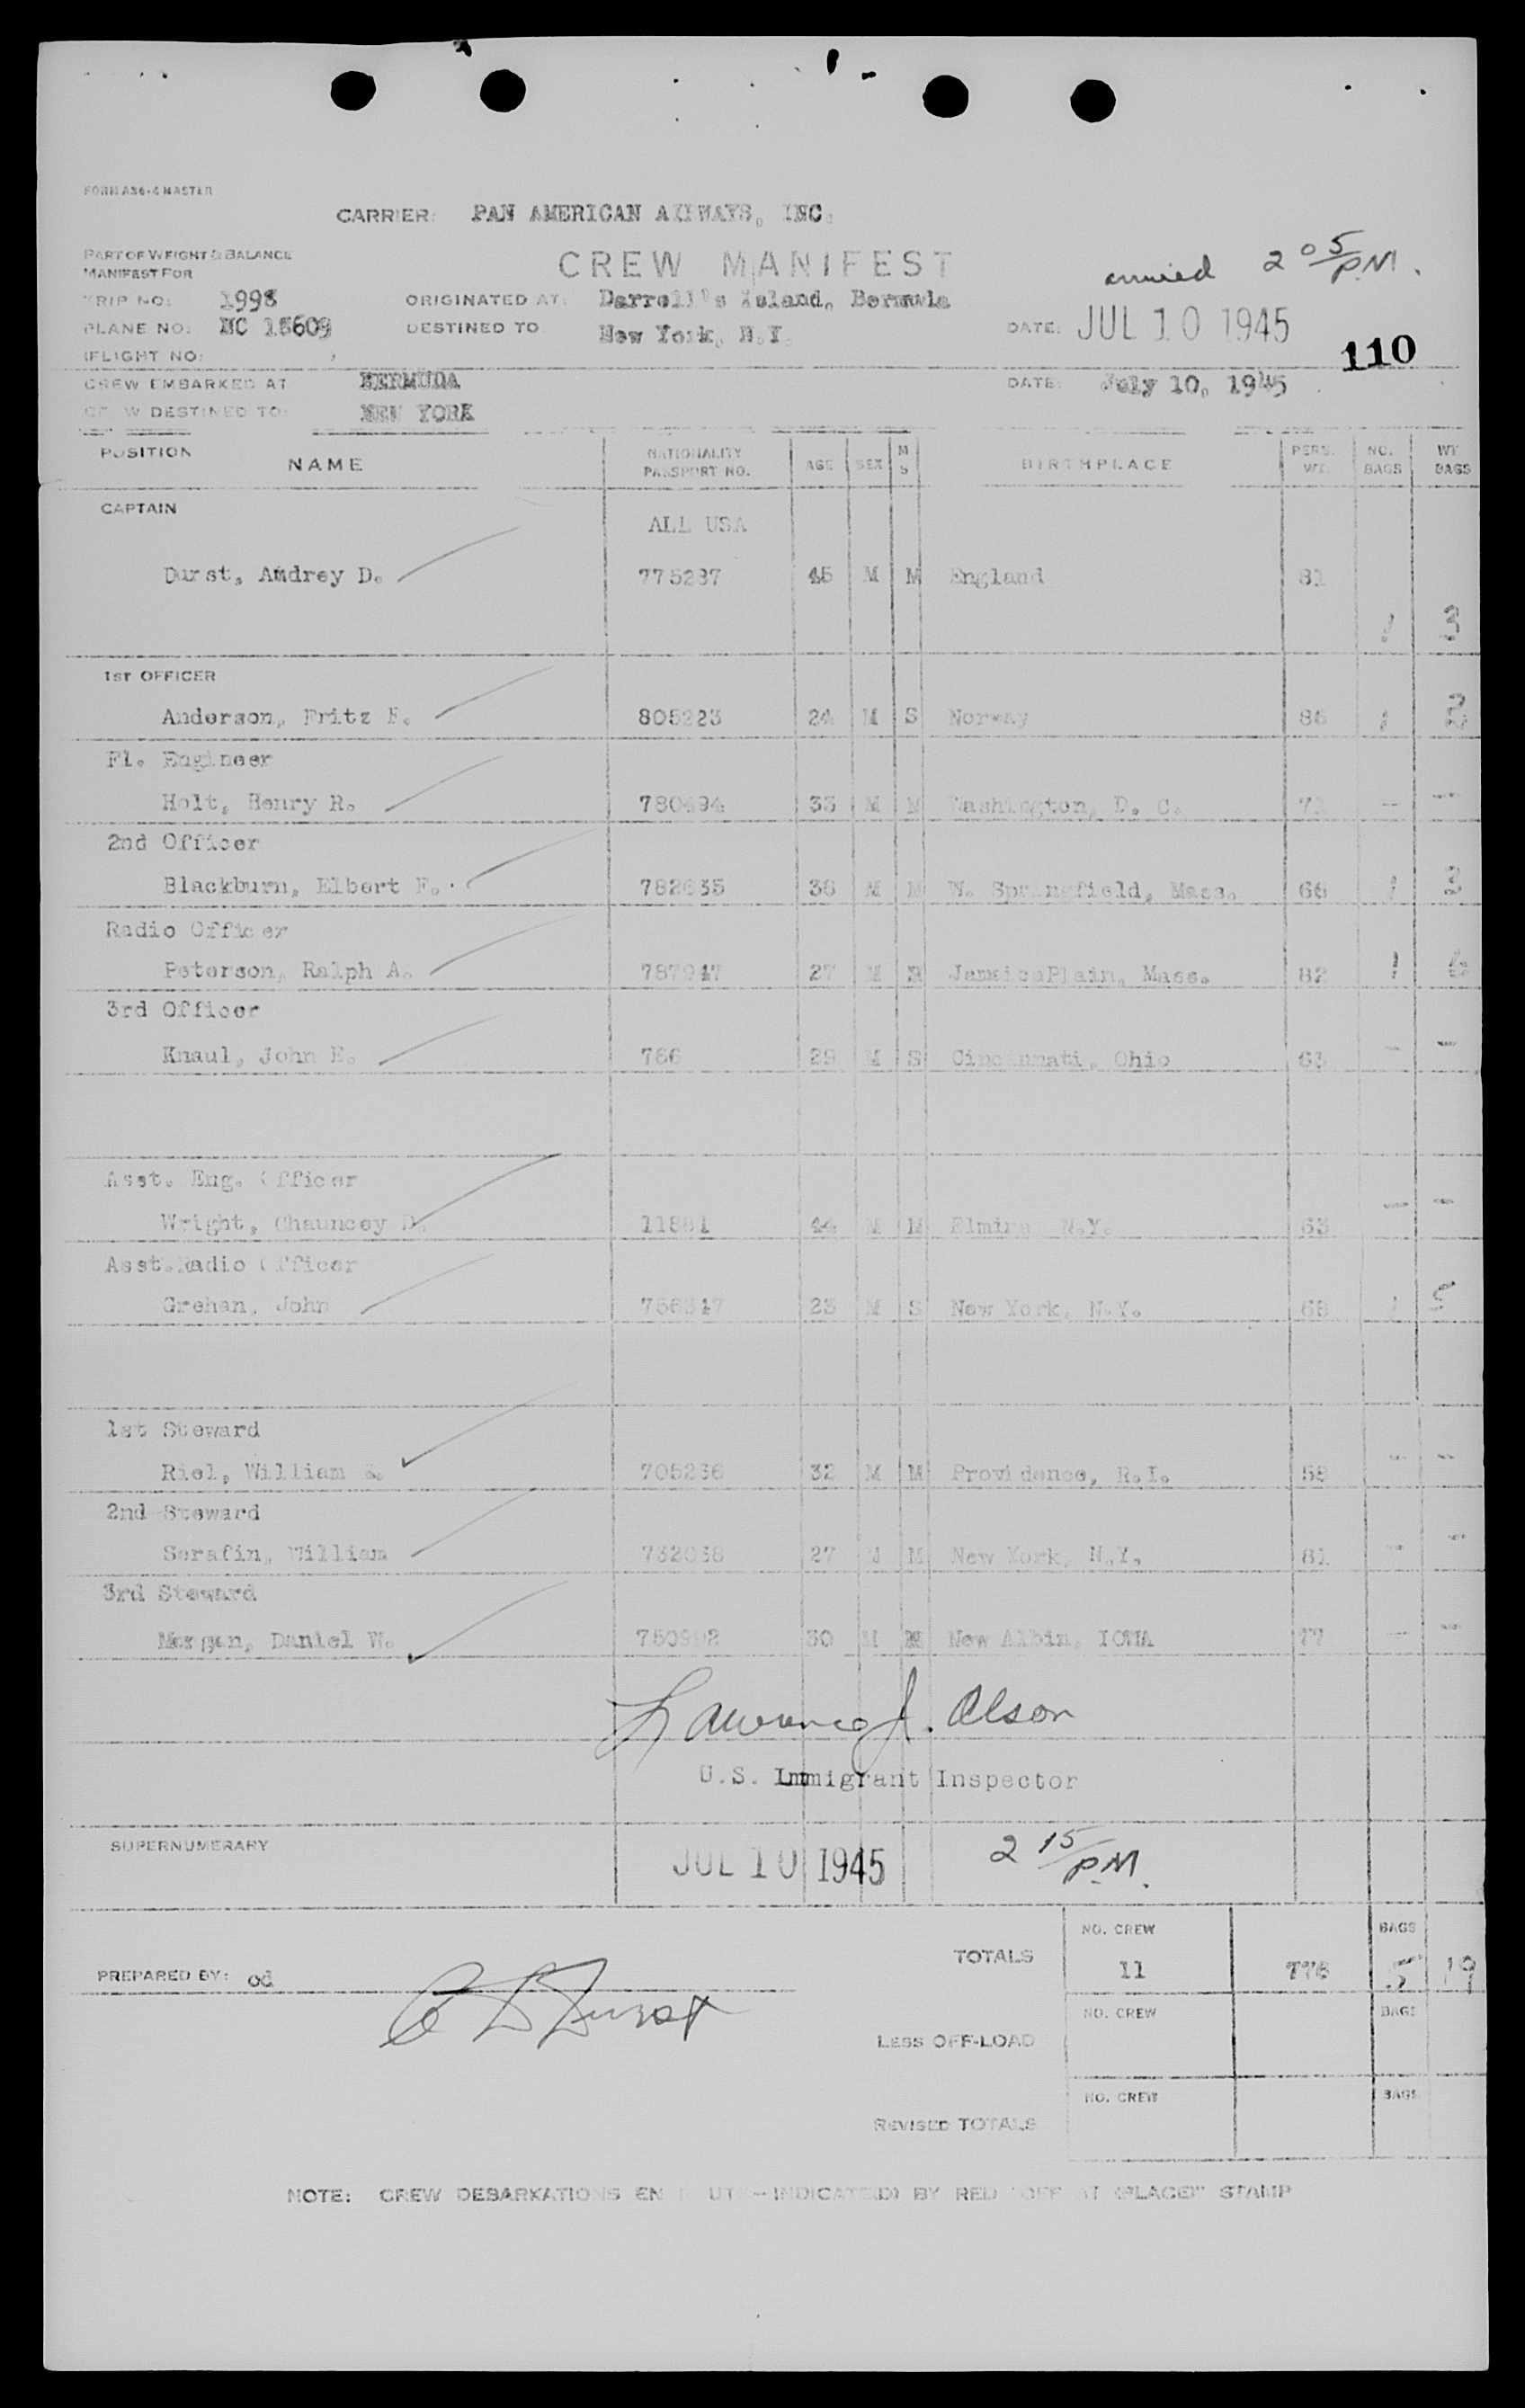 FORM A36-4 MASTER
CARRIER: PAN AMERICAN AIRWAYS, INC.
PART OF WEIGHT & BALANCE
MANIFEST FOR
CREW MANIFEST
arrived 2 05/PM.
TRIP NO: 1998 ORIGINATED AT: Darrell's Island, Bermuda
PLANE NO: NC 18609 DESTINED TO New York, N.Y. DATE: JUL 10 1945
(FLIGHT NO: 110
CREW EMBARKED AT BERMUDA DATE: July 10, 1945
CREW DESTINED TO: NEW YORK
POSITION NAME NATIONALITY PASSPORT NO. AGE SEX M S BIRTHPLACE PERS. WT. NO. BAGS WT BAGS
CAPTAIN ALL USA
Durst, Audrey D. 775237 45 M M England 81 1 3
1ST OFFICER
Anderson, Fritz F. 805223 24 M S Norway 86 1
Fl. Engineer
Holt, Henry R. 780494 33 M M Washington, D. C. -- --
2nd Officer
Blackburn, Elbert F. 782635 36 M M W. Springfield, Mass. 68 1 3
Radio Officer
Peterson, Ralph A. 787947 27 M M JamaicaPlain, Mass. 82 1
3rd Officer
Knaul, John E. 786 29 M S Cincinnati, Ohio -- --
Asst. Eng. Officer
Wright, Chauncey D. 11881 44 M M Elmira N.Y. 63 -- --
Asst.Radio Officer
Grehan, John 23 M S New York, N.Y. 68 1 5
1st Steward
Riel, William 705236 32 M M Providence, R.I. 59 -- --
2nd Steward
Serafin, William 732038 27 M M New York, N.Y. 81 -- --
3rd Steward
Morgan, Daniel W. 750992 30 M M New Albin, IOWA 77 -- --
Lawrence J. Olson
U.S. Immigrant Inspector
SUPERNUMERARY JUL 10 1945 2 15/PM.
NO. CREW BAGS
TOTALS 11 776 5 19
PREPARED BY: od
C D Durst
NO. CREW BAGS
LESS OFF-LOAD
NO. CREW BAGS
REVISED TOTALS
NOTE: CREW DEBARKATIONS EN ROUTE--INDICATE(D) BY RED "OFF AT (PLACE)" STAMP